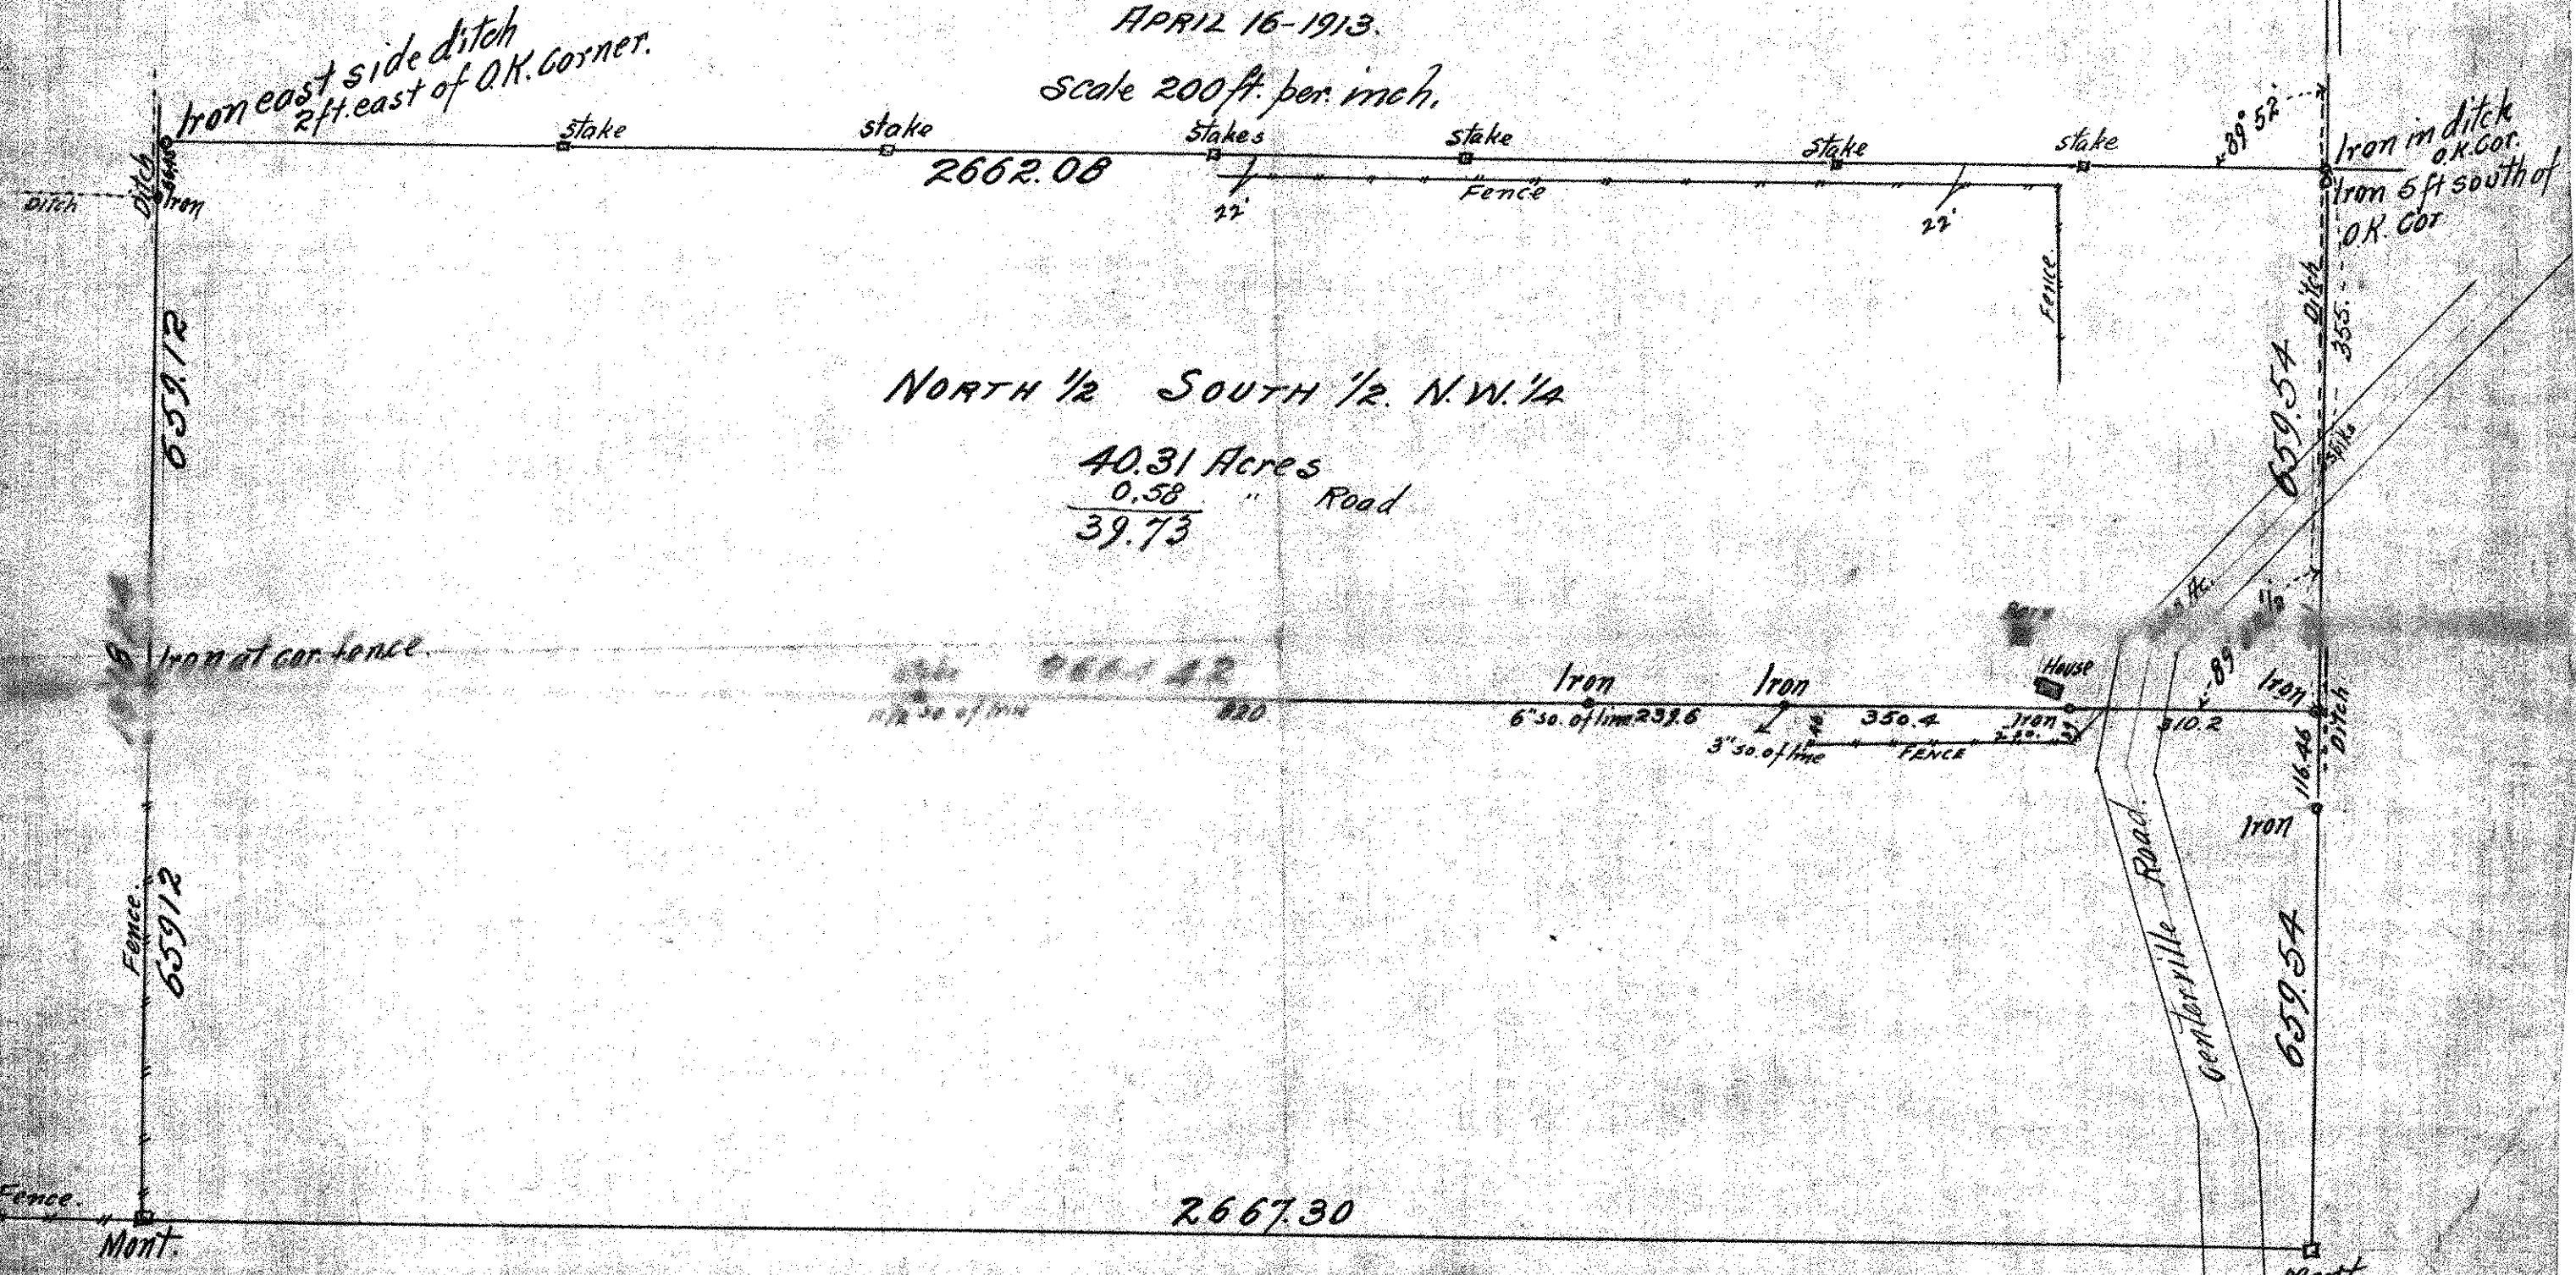 APRIL 16-1913.
Scale 200 ft. per. inch.
Iron east side ditch
2 ft. east of O.K. Corner.
stake
stake
Stakes
stake
stake
stake
89° 52'
Iron in ditch
O.K. Cor.
Iron 5 ft south of
O.K. Cor
2662.08
Fence
22'
22'
Ditch
Ditch
Iron
Fence
Ditch
355.
659.12
659.54
spike
NORTH 1/2 SOUTH 1/2. N.W. 1/4
40.31 Acres
0.58 " Road
39.73
Ac.
89
Iron at cor. fence.
42
so. of line
820
Iron
6" so. of line
239.6
Iron
3" so. of line
350.4
FENCE
House
Iron
310.2
Iron
Ditch
116.46
Iron
Fence.
65912
Centerville Road.
659.54
Fence.
Mont.
2667.30
Mont